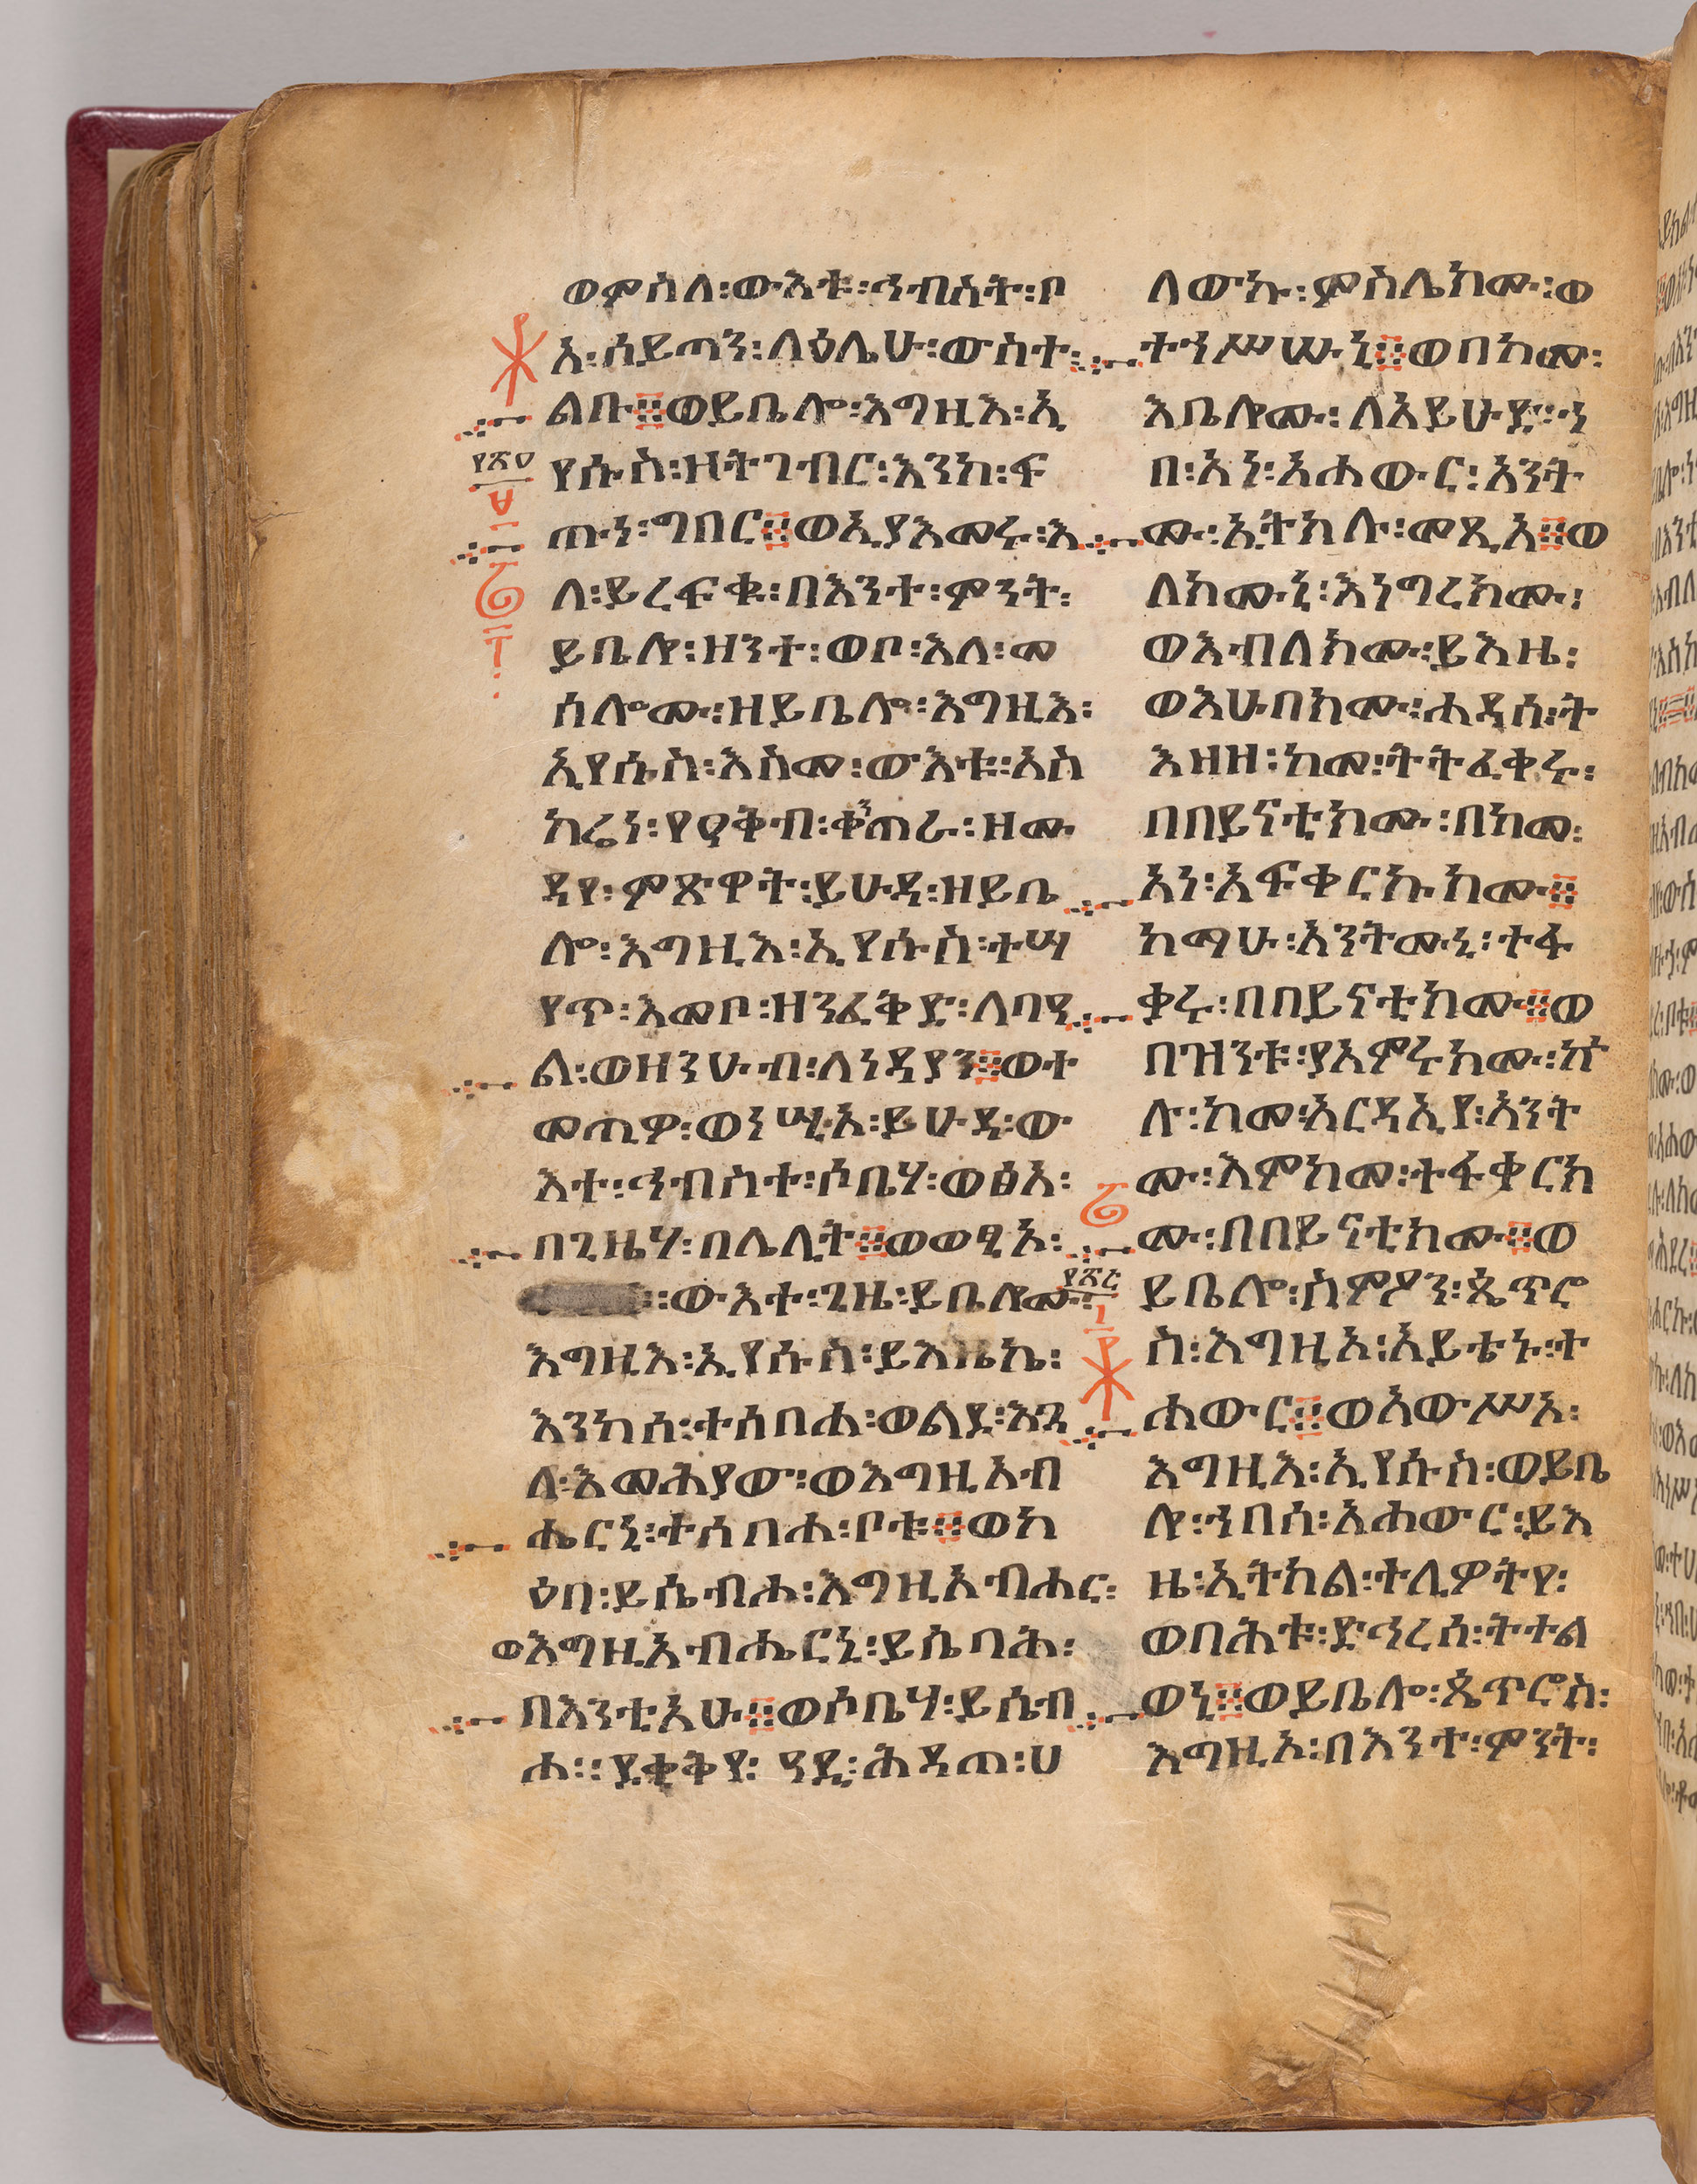 ወምስለ፡ውእቱ፡ኅብስት፡ቦ
አ፡ሰይጣን፡ላዕሌሁ፡ውስተ፡
ልቡ።ወይቤሎ፡እግዚእ፡ኢ
የሱስ፡ዘትገብር፡እንከ፡ፍ
ጡነ፡ግበር።ወኢያእመሩ፡እ
ለ፡ይረፍቁ፡በእንተ፡ምንት፡
ይቤሎ፡ዘንተ፡ወቦ፡እለ፡መ
ሰሎሙ፡ዘይቤሎ፡እግዚእ፡
ኢየሱስ፡እስመ፡ውእቱ፡አስ
ከሬነ፡የዐቅብ፡ቀንጠራ፡ዘሙ
ዳየ፡ምጽዋት፡ይሁዳ፡ዘይቤ
ሎ፡እግዚእ፡ኢየሱስ፡ተሣ
የጥ፡እመቦ፡ዘንፈቅድ፡ለባዓ
ል፡ወዘንሁብ፡ለነዳያን።ወተ
መጢዎ፡ወነሢአ፡ይሁዳ፡ው
እተ፡ኅብስተ፡ሶቤሃ፡ወፅአ፡
በጊዜሃ፡በሌሊት።ወወፂኦ፡
፡ውእተ፡ጊዜ፡ይቤሎሙ፡
እግዚእ፡ኢየሱስ፡ይእዜኬ፡
እንከሰ፡ተሰብሐ፡ወልደ፡እጓ
ለ፡እመሕያው፡ወእግዚአብ
ሔርኒ፡ተሰብሐ፡ቦቱ።ወከ
ዕበ፡ይሴብሖ፡እግዚአብሔር፡
ወእግዚአብሔርኒ፡ይሴባሕ፡
በእንቲአሁ።ወሶቤሃ፡ይሴብ
ሖ፡፡ደቂቅየ፡ዓዲ፡ሕዳጠ፡ሀ
ለውኩ፡ምስሌክሙ፡ወ
ተኀሥሡኒ።ወበከመ፡
እቤሎሙ፡ለአይሁድ፡ኀ
በ፡አነ፡አሐውር፡አንት
ሙ፡ኢትክሉ፡መጺአ።ወ
ለክሙኒ፡እነግረክሙ፡
ወእብለክሙ፡ይእዜ፡
ወእሁበክሙ፡ሐዳሰ፡ት
እዘዘ፡ከመ፡ትትፈቀሩ፡
በበይናቲክሙ፡በከመ፡
አነ፡አፍቀርኩክሙ።
ከማሁ፡አንትሙኒ፡ተፋ
ቀሩ፡በበይናቲክሙ።ወ
በዝንቱ፡ያአምሩክሙ፡ኵ
ሉ፡ከመ፡አርዳኢየ፡አንት
ሙ፡እምከመ፡ተፋቀርክ
ሙ፡በበይናቲክሙ።ወ
ይቤሎ፡ስምዖን፡ጴጥሮ
ስ፡እግዚኦ፡አይቴኑ፡ተ
ሐውር።ወአውሥአ፡
እግዚእ፡ኢየሱስ፡ወይቤ
ሎ፡ኀበሰ፡አሐውር፡ይእ
ዜ፡ኢትክል፡ተሊዎትየ፡
ወበሕቱ፡ድኅረሰ፡ትተል
ወኒ።ወይቤሎ፡ጴጥሮስ፡
እግዚኦ፡በእንተ፡ምንት፡